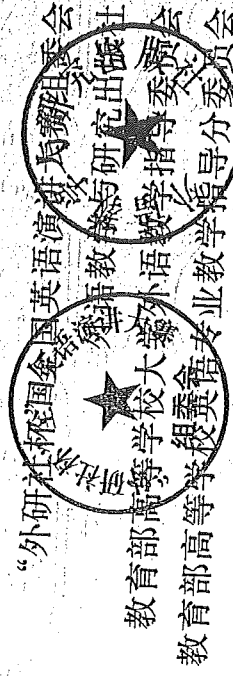 “外研社杯”全国英语演讲大赛组委会
外语教学与研究出版社
教育部高等学校大学外语教学指导委员会
教育部高等学校英语专业教学指导分委员会
组委会